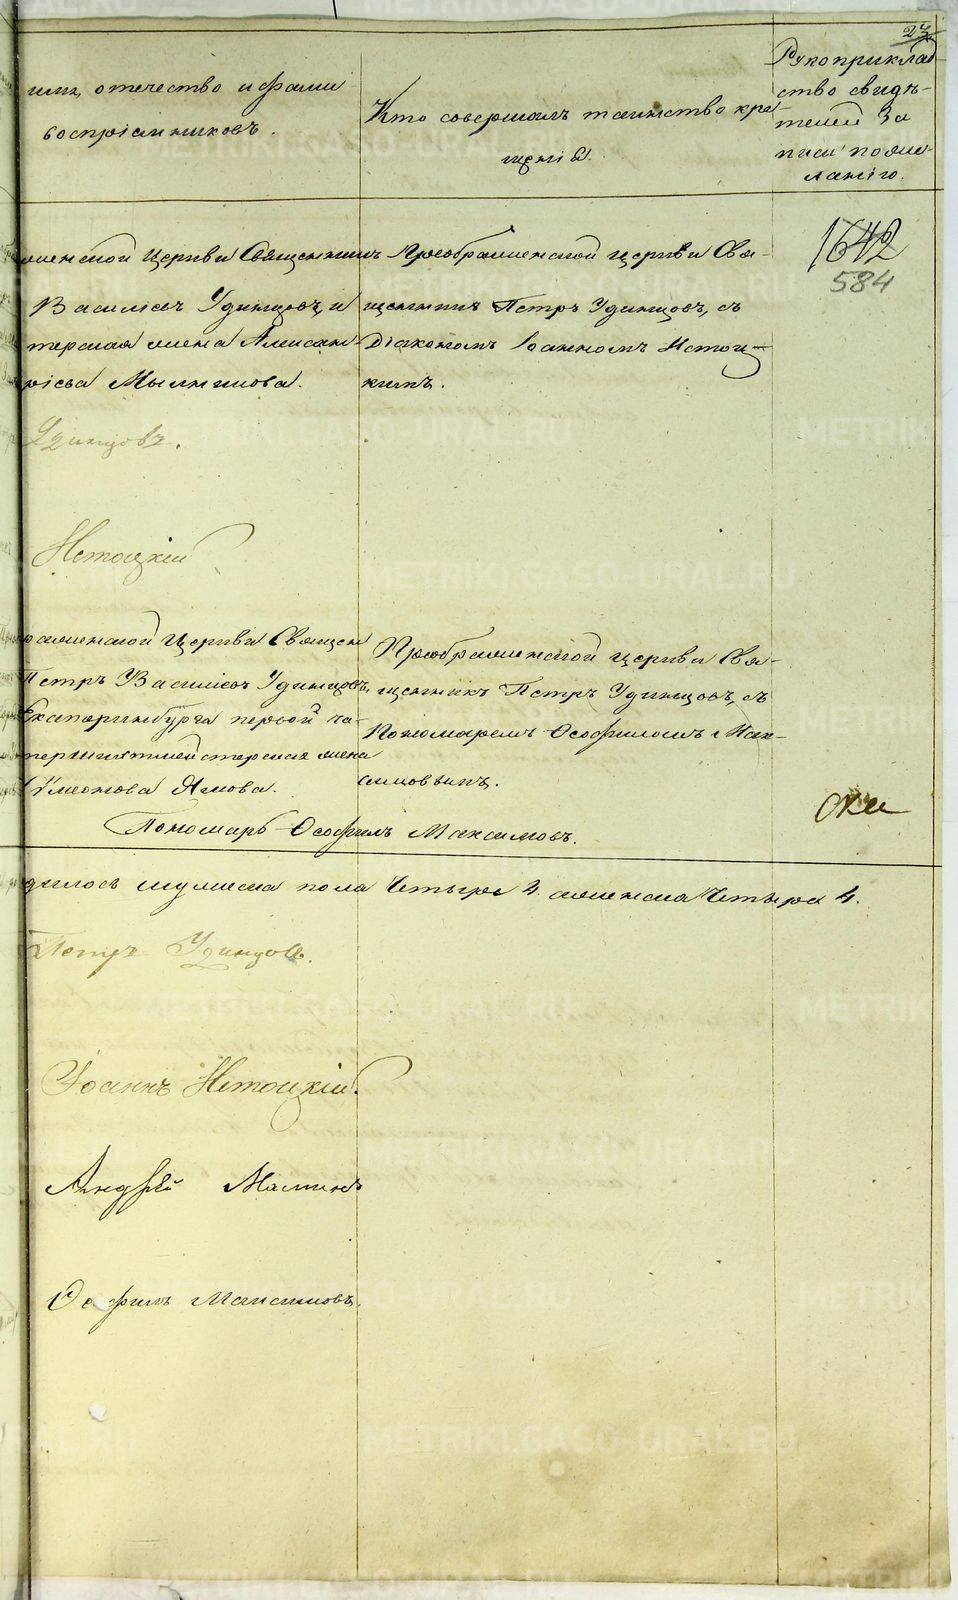 23
имя, отечество и фами
воспріемниковъ.
Кто совершалъ таинство кре-
щенія.
Рукоприклад
ство свидѣ-
телей за
писи по же-
ланію.
1642
584
женской Церкви Священник
Васильевъ Удинцовъ, и
терская жена Алексан
рієва Мыльникова.
Преображенской церкви Свя-
щенникъ Петръ Удинцовъ, съ
Діакономъ Іоанномъ Истоц-
кимъ.
Удинцовъ.
Истоцкій
раженской Церкви Священ
Петръ Васильевъ Удинцовъ,
Екатеринбурга первой ча-
жена
Симеонова Ямова.
Преображенской церкви Свя-
щенникъ Петръ Удинцовъ, съ
Пономаремъ Ѳеофиломъ Мак-
симовымъ.
Пономарь Ѳеофилъ Максимовъ.
дилось мужеска пола Четыре 4. женска Четыре 4.
Петръ Удинцовъ.
Іоаннъ Истоцкій.
Андрей Маминъ
Ѳеофилъ Максимовъ.
METRIKI.GASO-URAL.RU